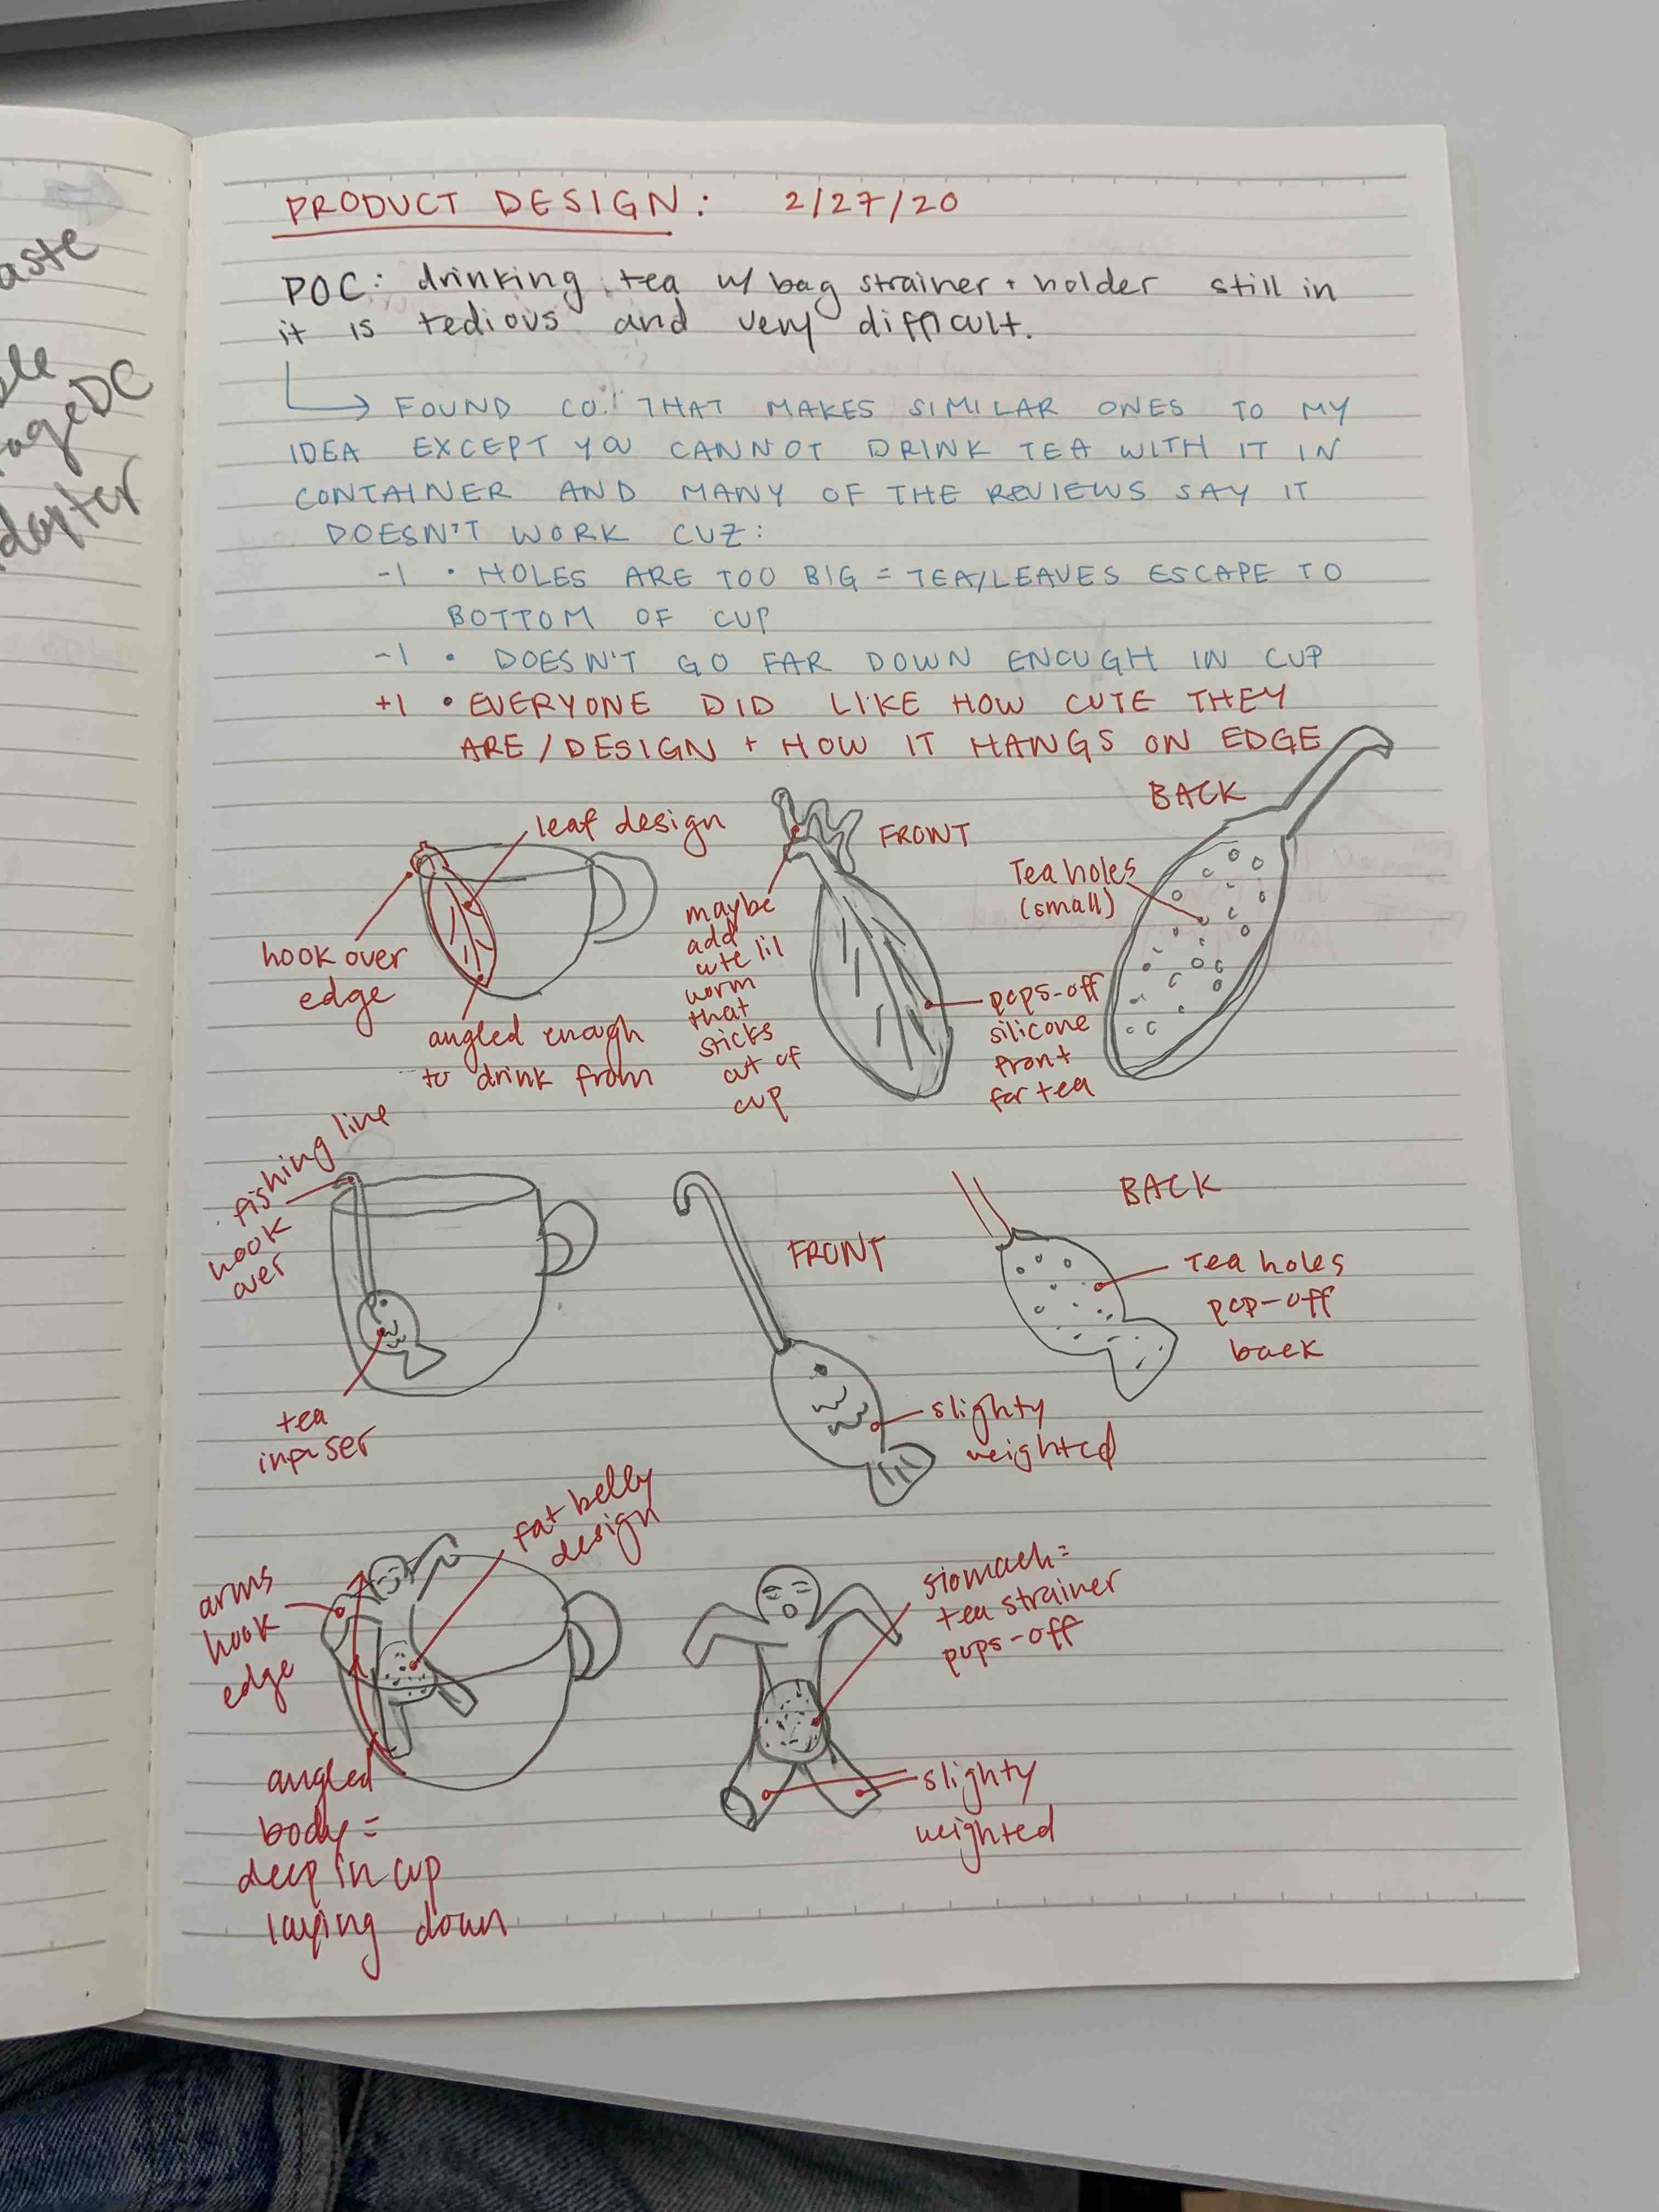 aste
ageDC
dapter
PRODUCT DESIGN: 2/27/20
POC: drinking tea w/ bag strainer + holder still in
it is tedious and very difficult.
FOUND CO. THAT MAKES SIMILAR ONES TO MY
IDEA EXCEPT YOU CANNOT DRINK TEA WITH IT IN
CONTAINER AND MANY OF THE REVIEWS SAY IT
DOESN'T WORK CUZ:
-1 • HOLES ARE TOO BIG = TEA/LEAVES ESCAPE TO
BOTTOM OF CUP
-1 • DOESN'T GO FAR DOWN ENOUGH IN CUP
+1 • EVERYONE DID LIKE HOW CUTE THEY
ARE/DESIGN + HOW IT HANGS ON EDGE
leaf design
hook over
edge
angled enough
to drink from
FRONT
maybe
add
cute lil
worm
that
sticks
out of
cup
pops-off
silicone
front
for tea
BACK
Tea holes
(small)
fishing line
hook
over
tea
infuser
FRONT
slighty
weighted
BACK
Tea holes
pop-off
back
arms
hook
edge
fat belly
design
angled
body =
deep in cup
laying down
stomach =
tea strainer
pops-off
slighty
weighted